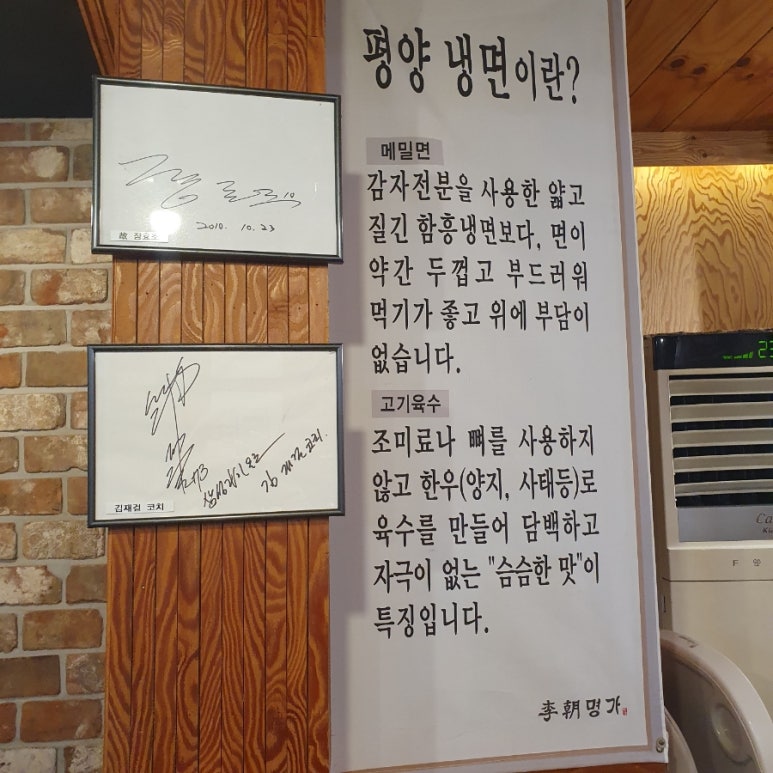 평양 냉면이란?
메밀면
감자전분을 사용한 얇고
질긴 함흥냉면보다, 면이
약간 두껍고 부드러워
먹기가 좋고 위에 부담이
없습니다.
고기육수
조미료나 뼈를 사용하지
않고 한우(양지, 사태등)로
육수를 만들어 담백하고
자극이 없는 "슴슴한 맛"이
특징입니다.
李朝명가
2010. 10. 23
삼성라이온즈
김재걸 코치
김재걸 코치
23